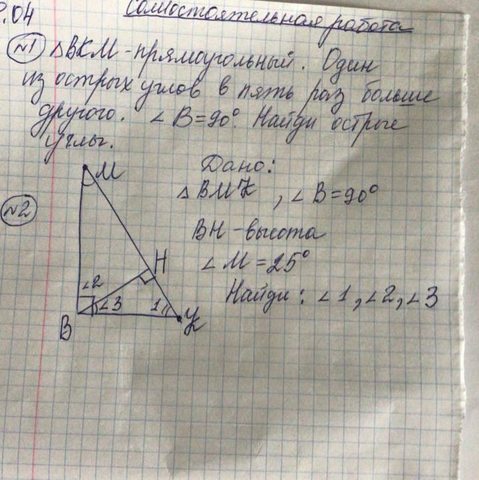 .04
Самостоятельная работа
№1 △ВКМ-прямоугольный. Один
из острых углов в пять раз больше
другого. ∠В=90°. Найди острые
углы.
№2
Дано:
△ВМК, ∠В=90°
ВН-высота
∠М=25°
Найди: ∠1, ∠2, ∠3
М
Н
∠2
∠3
1
В
К